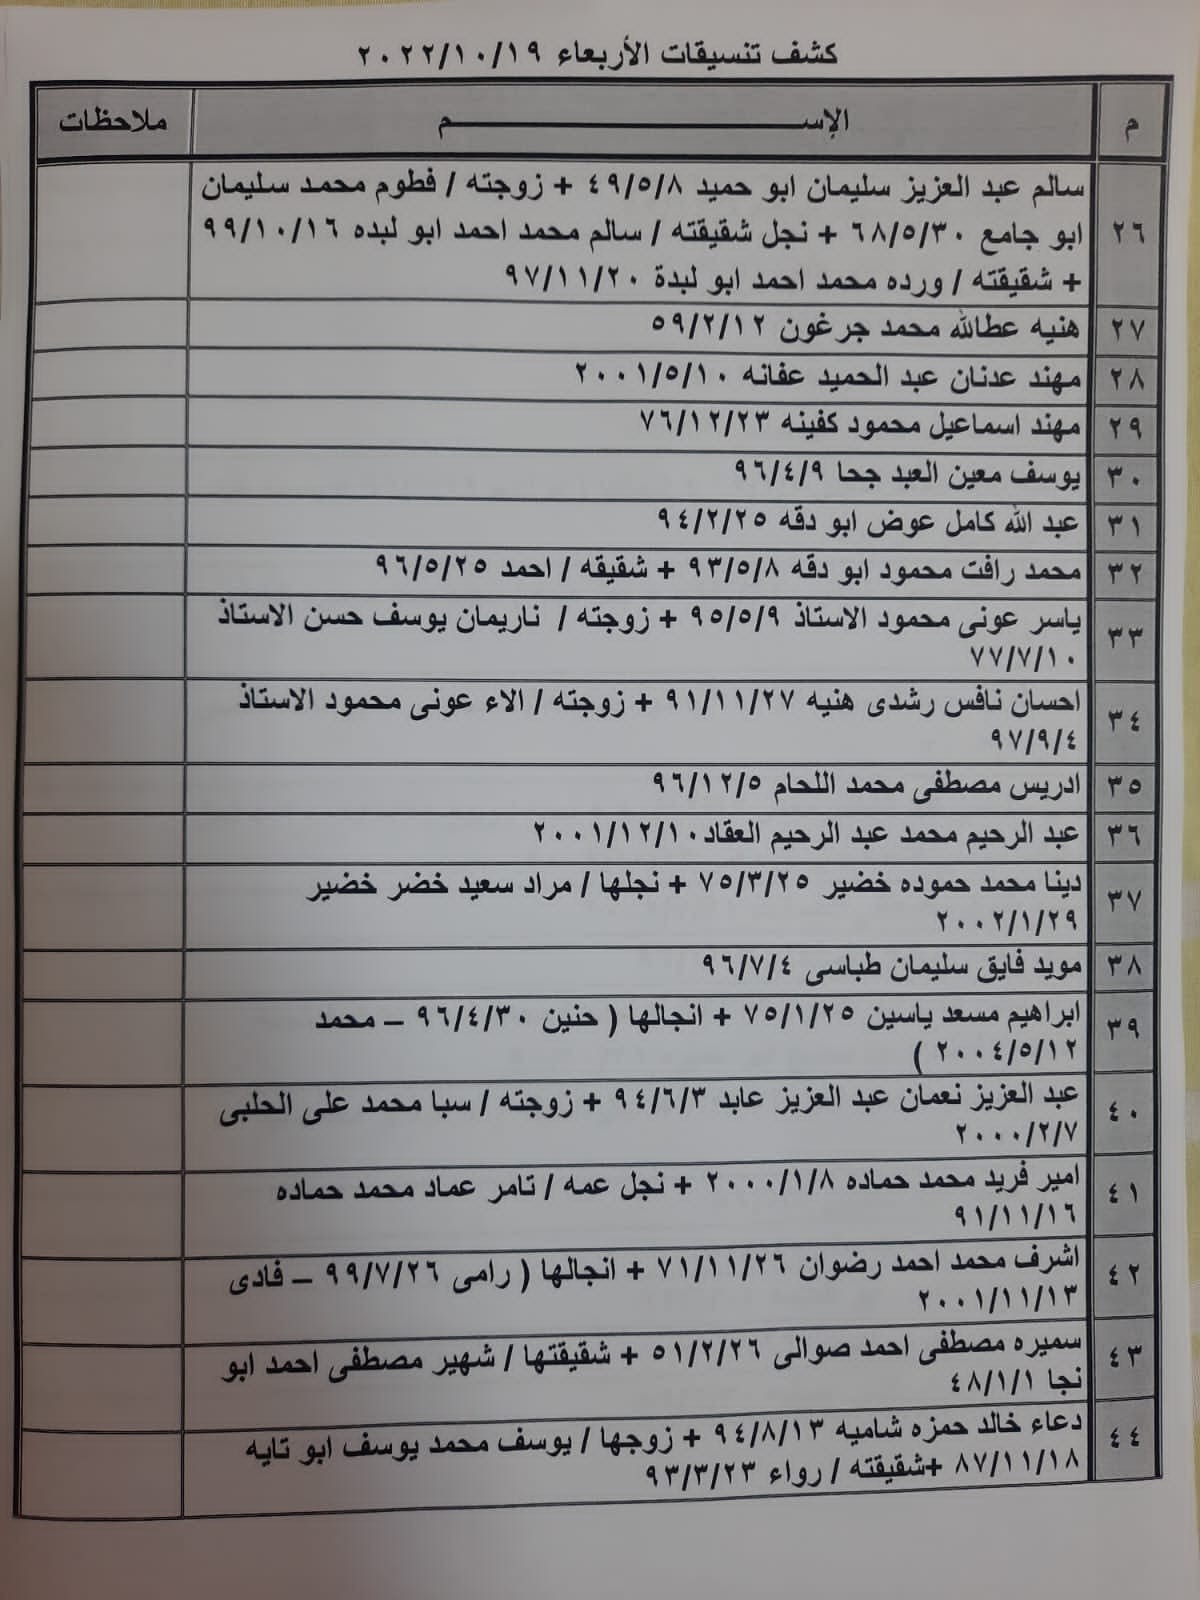 كشف تنسيقات الأربعاء ٢٠٢٢/١٠/١٩
م الإســـــــم ملاحظات
٢٦ سالم عبد العزيز سليمان ابو حميد ٤٩/٥/٨ + زوجته / فطوم محمد سليمان
ابو جامع ٦٨/٥/٣٠ + نجل شقيقته / سالم محمد احمد ابو لبده ٩٩/١٠/١٦
+ شقيقته / ورده محمد احمد ابو لبدة ٩٧/١١/٢٠
٢٧ هنيه عطالله محمد جرغون ٥٩/٢/١٢
٢٨ مهند عدنان عبد الحميد عفانه ٢٠٠١/٥/١٠
٢٩ مهند اسماعيل محمود كفينه ٧٦/١٢/٢٣
٣٠ يوسف معين العبد جحا ٩٦/٤/٩
٣١ عبد الله كامل عوض ابو دقه ٩٤/٢/٢٥
٣٢ محمد رافت محمود ابو دقه ٩٣/٥/٨ + شقيقه / احمد ٩٦/٥/٢٥
٣٣ ياسر عونى محمود الاستاذ ٩٥/٥/٩ + زوجته / ناريمان يوسف حسن الاستاذ
٧٧/٧/١٠
٣٤ احسان نافس رشدى هنيه ٩١/١١/٢٧ + زوجته / الاء عونى محمود الاستاذ
٩٧/٩/٤
٣٥ ادريس مصطفى محمد اللحام ٩٦/١٢/٥
٣٦ عبد الرحيم محمد عبد الرحيم العقاد٢٠٠١/١٢/١٠
٣٧ دينا محمد حموده خضير ٧٥/٣/٢٥ + نجلها / مراد سعيد خضر خضير
٢٠٠٢/١/٢٩
٣٨ مويد فايق سليمان طباسى ٩٦/٧/٤
٣٩ ابراهيم مسعد ياسين ٧٥/١/٢٥ + انجالها ( حنين ٩٦/٤/٣٠ – محمد
٢٠٠٤/٥/١٢ )
٤٠ عبد العزيز نعمان عبد العزيز عابد ٩٤/٦/٣ + زوجته / سبا محمد على الحلبى
٢٠٠٠/٢/٧
٤١ امير فريد محمد حماده ٢٠٠٠/١/٨ + نجل عمه / تامر عماد محمد حماده
٩١/١١/١٦
٤٢ اشرف محمد احمد رضوان ٧١/١١/٢٦ + انجالها ( رامى ٩٩/٧/٢٦ – فادى
٢٠٠١/١١/١٣
٤٣ سميره مصطفى احمد صوالى ٥١/٢/٢٦ + شقيقتها / شهير مصطفى احمد ابو
نجا ٤٨/١/١
٤٤ دعاء خالد حمزه شاميه ٩٤/٨/١٣ + زوجها / يوسف محمد يوسف ابو تايه
٨٧/١١/١٨ +شقيقته / رواء ٩٣/٣/٢٣